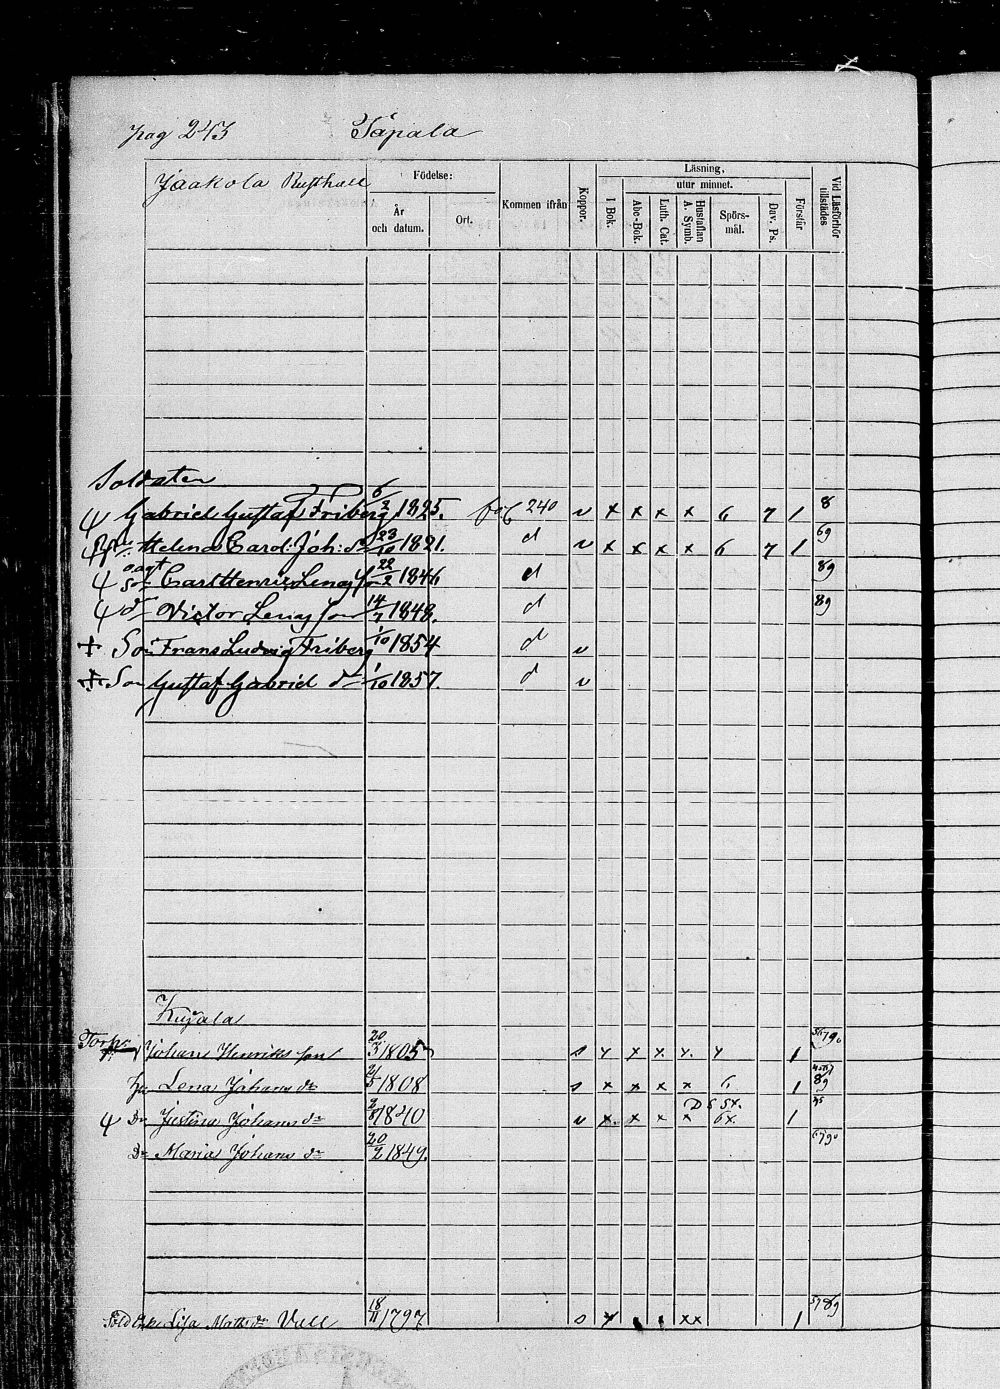 pag 243 Tåpala
Jaakola Rusthåll
Födelse:
År och datum.
Ort.
Kommen ifrån
Koppor.
Läsning,
I Bok.
utur minnet.
Abc-Bok.
Luth. Cat.
Hustaflan A. Symb.
Spörs-mål.
Dav. Ps.
Förstår
Vid Läsförhör tillstädes
Soldaten
Gabriel Gustaf Friberg 6/2 1825. pag 240 v x x x x 6 7 1 8
Helena Carol: Joh: dr 23/10 1821. d v x x x x 6 7 1 69
Carl Henric 22/2 1846 d 89
dr Victor 14/7 1848. d 89
Son Frans Ludvig Friberg 1/10 1854 d v
Son Gustaf Gabriel dr 1/10 1857. d v
Kujala
Torp: Johan Henriksson 20/3 1805 s x x x x x 1
hu Lena Johans dr 1808 s x x x x 6 1 89
Dr Justina Johans dr 2/8 1840 v x x x x 6x. 1
Dr Maria Johans dr 20/2 1849.
Sold Enk: Lisa Matts dr Vall 18/11 1797 s x xx 1 5789